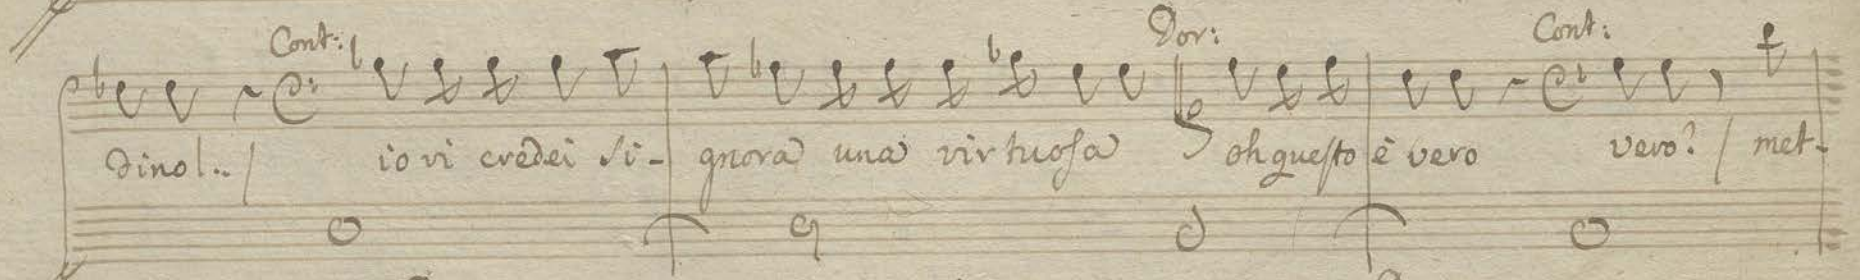 Cont: Dor: Cont:
dinol.. / io vi credei si- gnora una virtuosa oh questo è vero vero? / met-